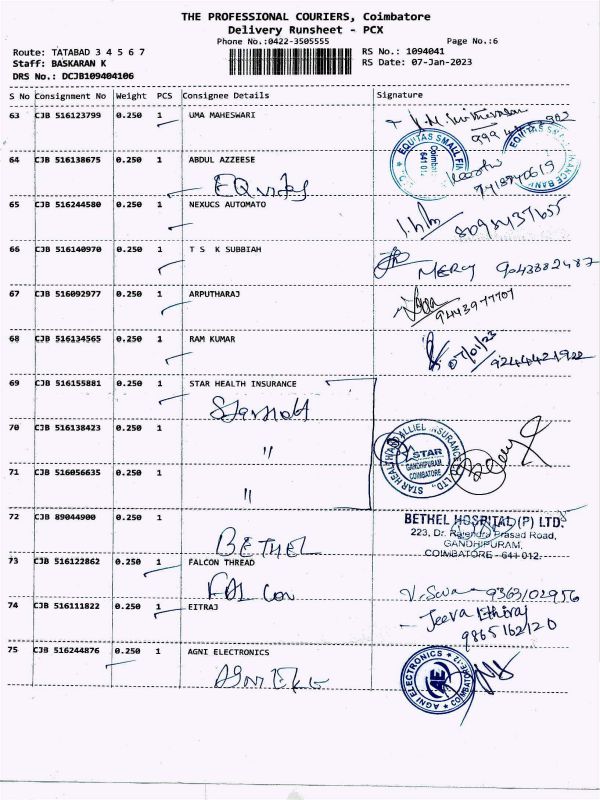 THE PROFESSIONAL COURIERS, Coimbatore
Delivery Runsheet - PCX
Phone No.:0422-3505555 Page No.:6
Route: TATABAD 3 4 5 6 7 RS No.: 1094041
Staff: BASKARAN K RS Date: 07-Jan-2023
DRS No.: DCJB109404106
S No Consignment No Weight PCS Consignee Details Signature
63 CJB 516123799 0.250 1 UMA MAHESWARI
64 CJB 516138675 0.250 1 ABDUL AZZEESE
EQuitas
EQUITAS SMALL FIN
Coimb
641 012
EQUITAS SMALL FINANCE BANK
7418740619
65 CJB 516244580 0.250 1 NEXUCS AUTOMATO
8098437655
66 CJB 516140970 0.250 1 T S K SUBBIAH
MERCY 9043882487
67 CJB 516092977 0.250 1 ARPUTHARAJ
9443977707
68 CJB 516134565 0.250 1 RAM KUMAR
07/01/23
9244421922
69 CJB 516155881 0.250 1 STAR HEALTH INSURANCE
70 CJB 516138423 0.250 1
"
STAR HEALTH ALLIEL INSURANCE
LTD.,
STAR
GANDHIPURAM,
COIMBATORE
71 CJB 516056635 0.250 1
"
72 CJB 89044900 0.250 1
BETHEL
BETHEL HOSPITAL (P) LTD
223, Dr. Rajendra Prasad Road,
GANDHIPURAM,
COIMBATORE - 641 012.
73 CJB 516122862 0.250 1 FALCON THREAD
FALCON
9363102956
74 CJB 516111822 0.250 1 EITRAJ
Jeeva Ethiraj
9865162120
75 CJB 516244876 0.250 1 AGNI ELECTRONICS
AGNI ELECTRONICS
COIMBATORE-12
AE